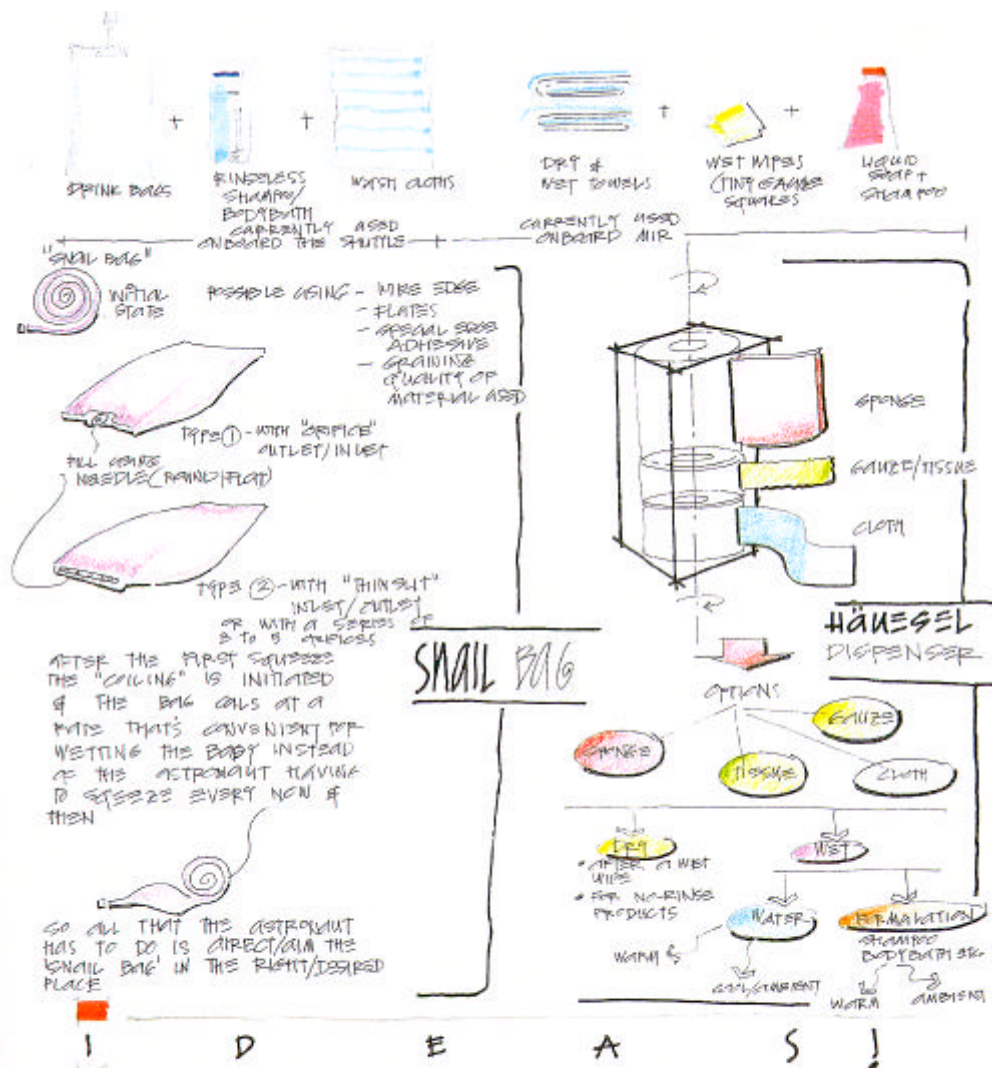 DRINK BAGS
+
RINSELESS
SHAMPOO/
BODYBATH
+
WASH CLOTHS
CURRENTLY USED
ONBOARD THE SHUTTLE
DRY &
WET TOWELS
+
WET WIPES
(TINY GAUZE
SQUARES
+
LIQUID
SOAP +
SHAMPOO
CURRENTLY USED
ONBOARD MIR
"SNAIL BAG"
INITIAL
STATE
POSSIBLE USING - WIRE EDGE
- PLATES
- SPECIAL EDGE
ADHESIVE
- GRAINING
QUALITY OF
MATERIAL USED
TYPE 1 - WITH "ORIFICE"
OUTLET/INLET
FILL USING
NEEDLE (ROUND/FLAT)
TYPE 2 - WITH "THIN SLIT"
INLET/OUTLET
OR WITH A SERIES OF
3 TO 5 ORIFICES
AFTER THE FIRST SQUEEZE
THE "COILING" IS INITIATED
& THE BAG COILS AT A
RATE THAT'S CONVENIENT FOR
WETTING THE BODY INSTEAD
OF THE ASTRONAUT HAVING
TO SQEEZE EVERY NOW &
THEN
SO ALL THAT THE ASTRONAUT
HAS TO DO IS DIRECT/AIM THE
'SNAIL BAG' IN THE RIGHT/DESIRED
PLACE
SNAIL BAG
SPONGE
GAUZE/TISSUE
CLOTH
HÄUESEL
DISPENSER
OPTIONS
SPONGE
TISSUE
GAUZE
CLOTH
DRY
• AFTER A WET
WIPE
• FOR NO-RINSE
PRODUCTS
WET
WATER
WARM &
COOL/AMBIENT
FORMULATION
SHAMPOO
BODYBATH ETC
WARM
AMBIENT
I D E A S !